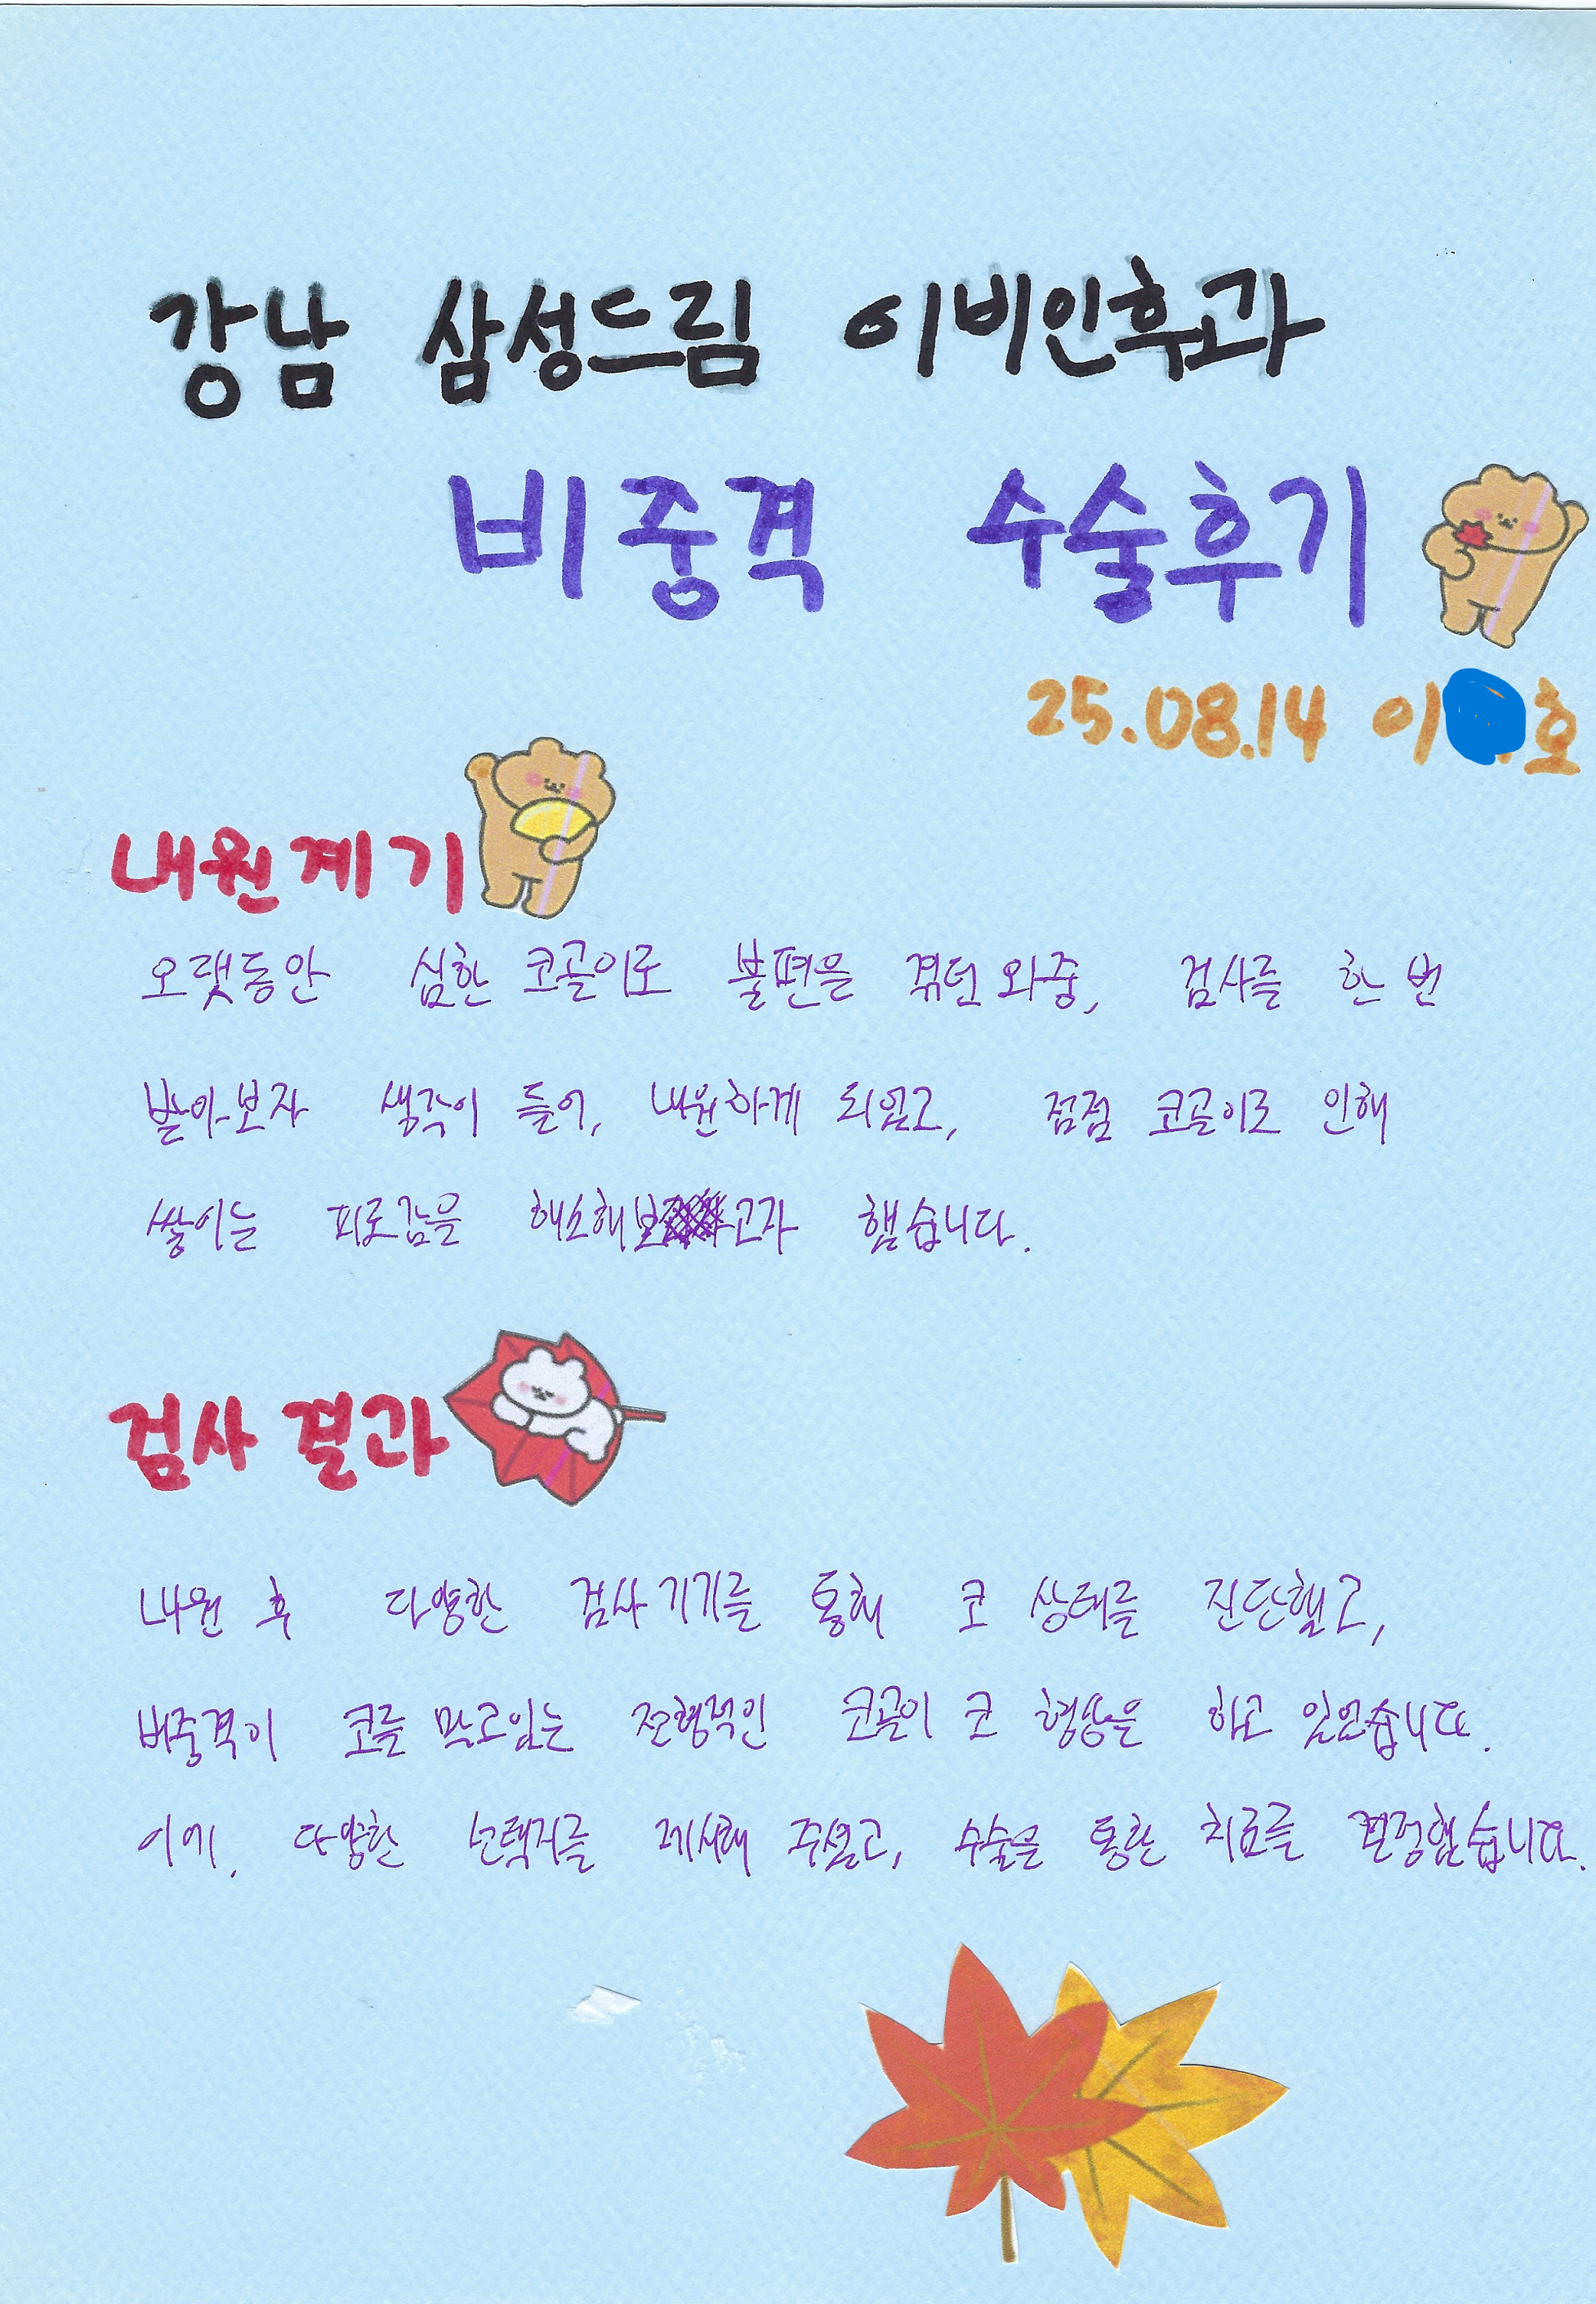 강남 삼성드림 이비인후과
비중격 수술후기
25.08.14 이 호
내원계기
오랫동안 심한 코골이로 불편을 겪던 와중, 검사를 한 번
받아보자 생각이 들어, 내원하게 되었고, 점점 코골이로 인해
쌓이는 피로감을 해소해보고자 했습니다.
검사 결과
내원 후 다양한 검사 기기를 통해 코 상태를 진단했고,
비중격이 코를 막고있는 전형적인 코골이 코 형상을 하고 있었습니다.
이에, 다양한 선택지를 제시해 주셨고, 수술을 통한 치료를 결정했습니다.